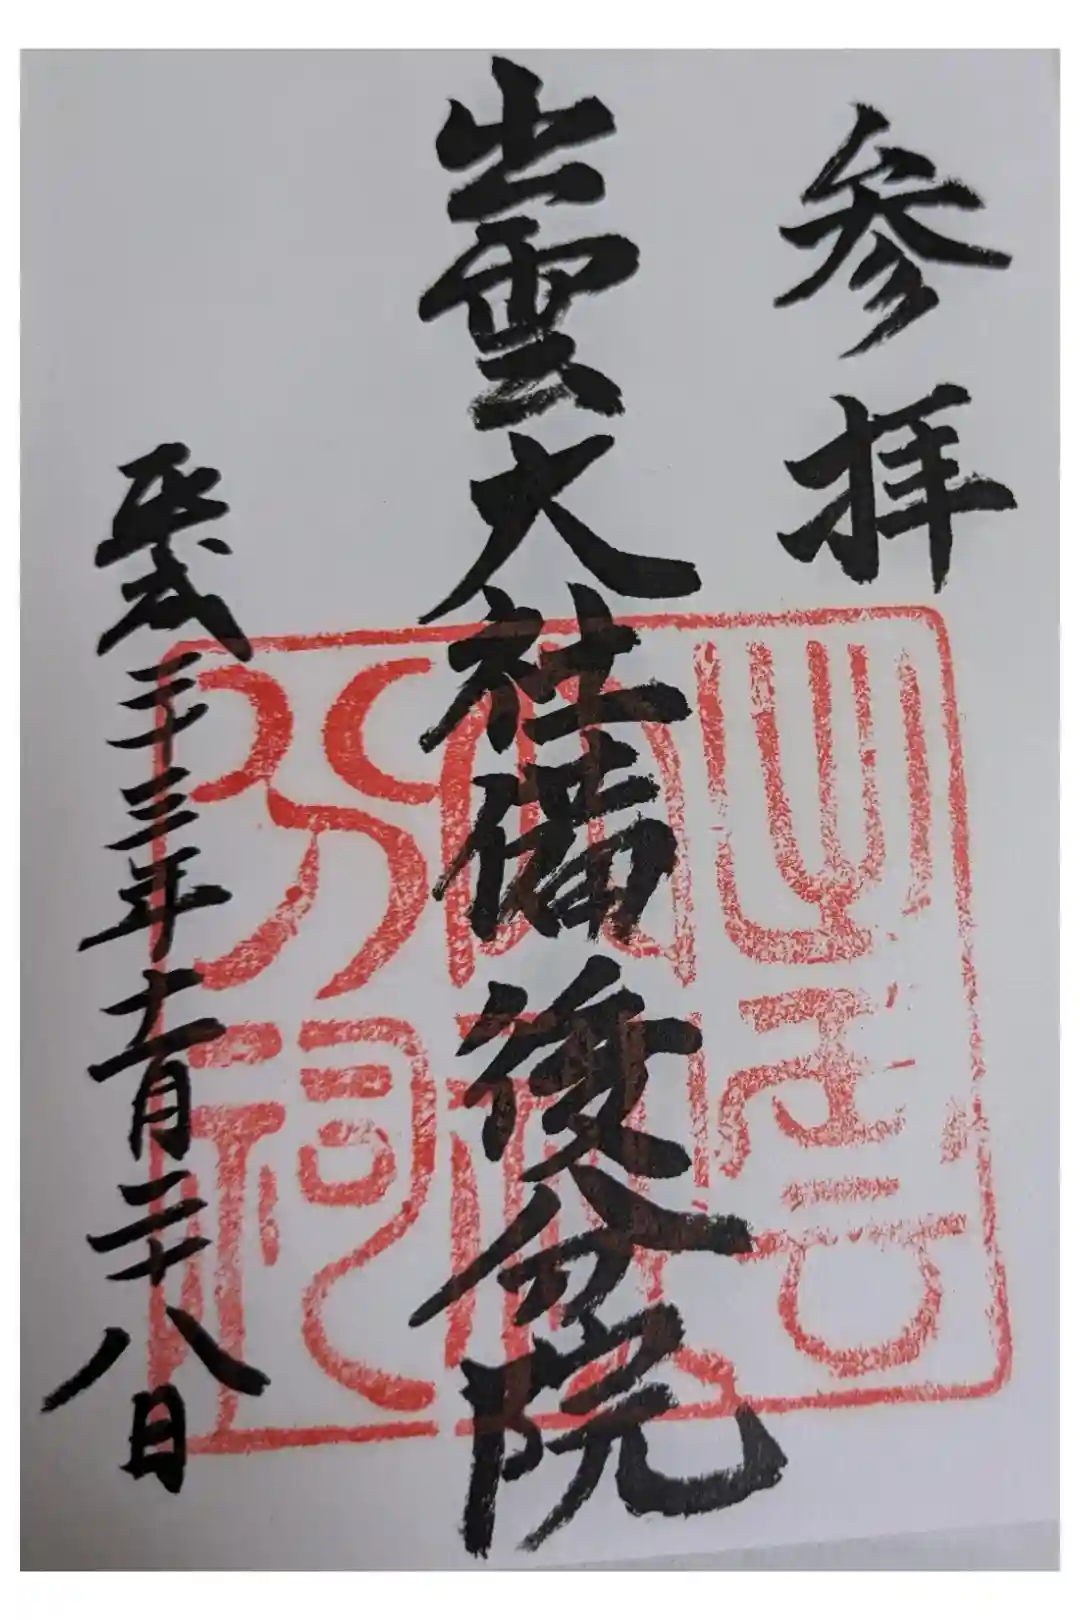 参拝
出雲大社備後分院
平成二十三年十一月二十八日